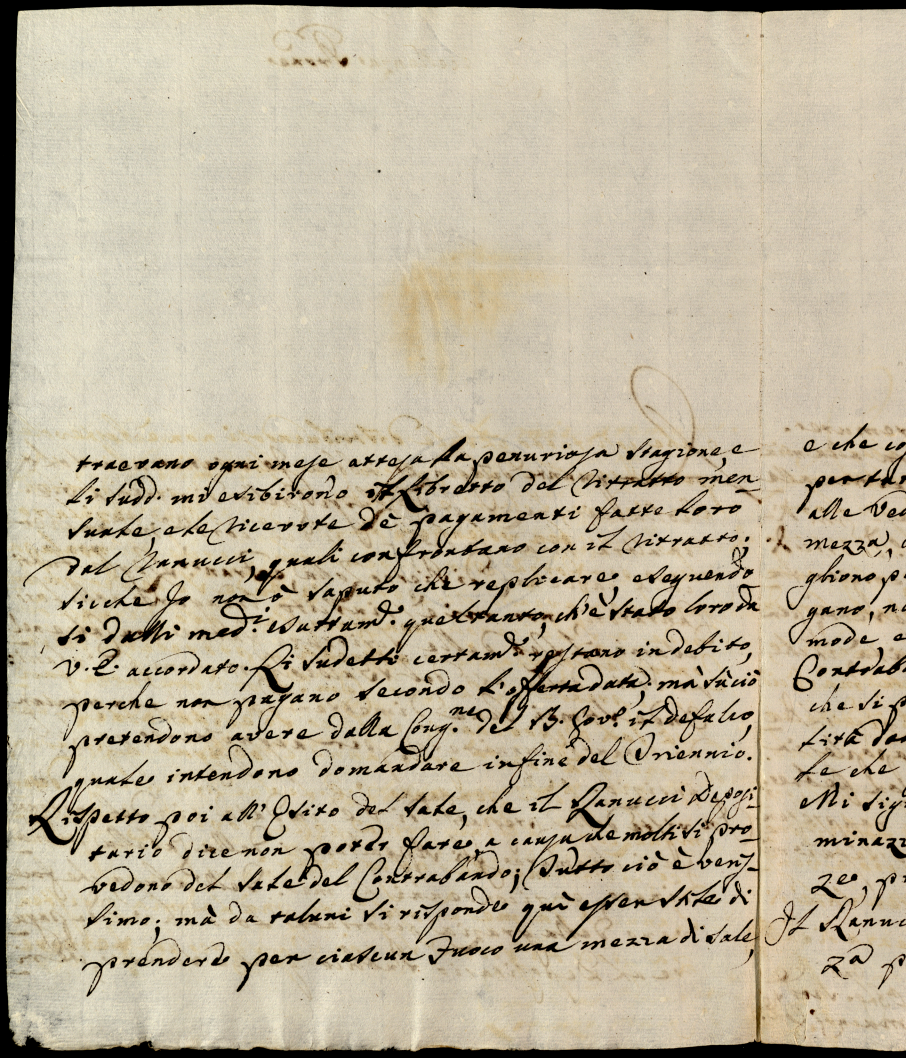 traevano ogni mese attesa la penuriosa stagione, e
li sudd. mi esibirono il Libretto del Ritratto men-
suale, e le Ricevute dè pagamenti fatte loro
dal Ranucci, quali confrontano con il ritratto;
sicche Jo non ò saputo che replicare, e seguendo
si dalli med.i esattam.e quel tanto, ch'è stato loro da
V. E. accordato. Li sudetti certam.e restano in debito,
perche non pagano secondo l'offerta data; mà sù ciò
pretendono avere dalla Cong.ne del B. Gov.o il defalco,
quale intendono domandare in fine del Triennio.
Rispetto poi all' Esito del sale, che il Ranucci Deposi-
tario dice non poter fare, a causa che molti si pro-
vedono del sale del Contrabando; Tutto ciò è veris-
simo; mà da taluni si risponde quì esser stile di
prendere per ciascun Fuoco una mezza di sale,
e che
per
alle
mezza,
gliono
gano,
mode e
che si
te che
Mi
ze,
Il Ranuc
za